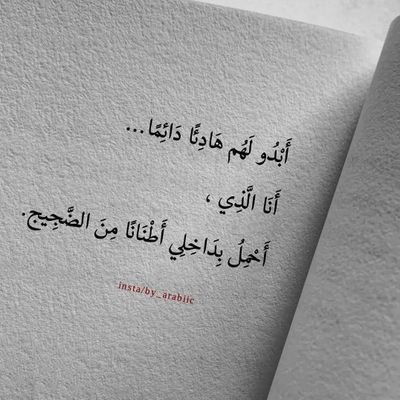 أَبْدُو لَهُم هَادِئًا دَائِمًا...
أَنَا الَّذِي ،
أَحْمِلُ بِدَاخِلِي أَطْنَانًا مِنَ الضَّجِيج.
insta/by_arabiic